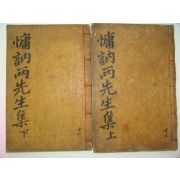 慵訥兩先生集上
慵訥兩先生集下